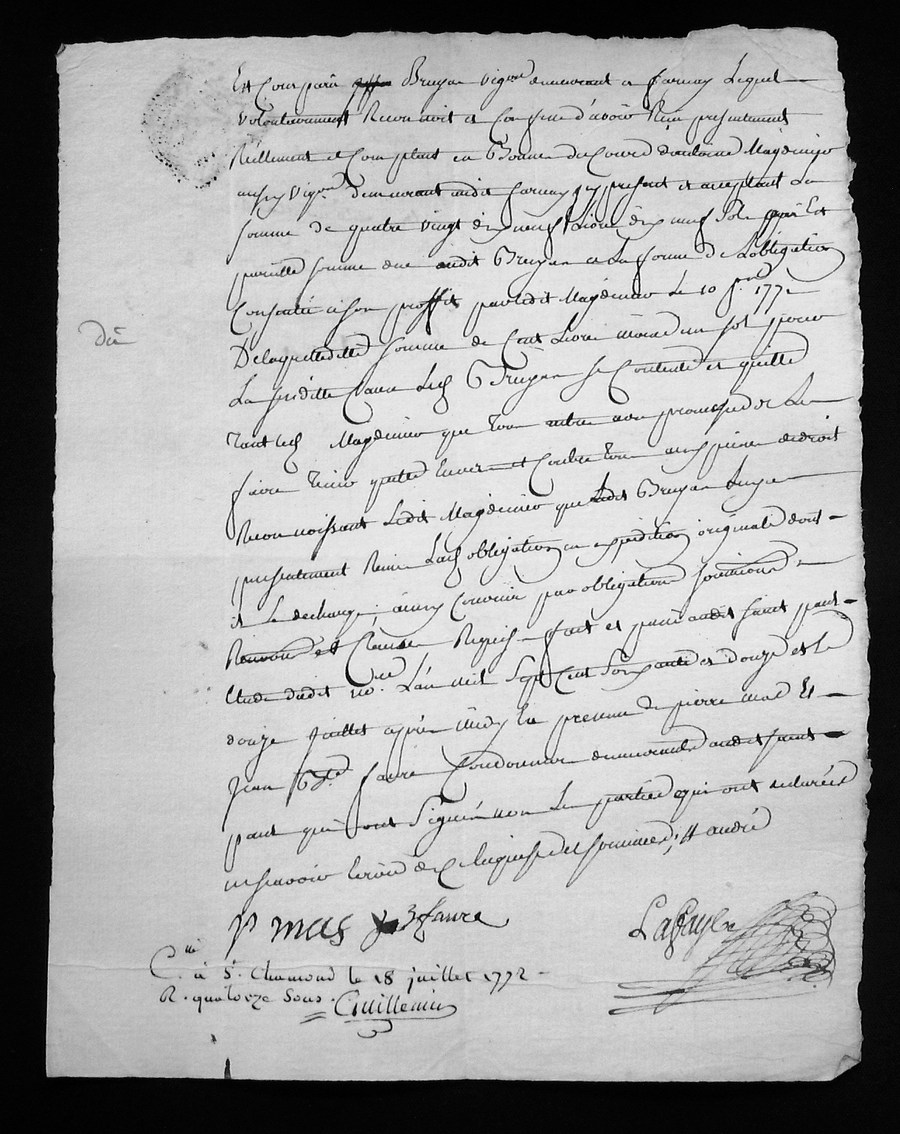 Est Comparu Bruyas vigron demeurant a farnay Lequel
volontairement Reconnoit et Confesse d'avoir Reçu presentement
Réellement et Comptant en Bonnes du Cours d'antoine Magdinier
aussy vigron demeurant audit farnay icy present et acceptant La
somme de quatre vingt dix neuf Livre dix neuf Sols
pareille somme due audit Bruyas a La forme de L'obligation
Consentie a son proffit par ledit Magdinier Le 10 1772
De laquelle ditte somme de Cent Livre moins un sol pour
La susditte Cause Led Bruyas se Contente et quitte
tant led Magdinier que tous autre avec promesse de Le
faire tenir quitte Envers et Contre tous aux peines de droit
Reconnoissant Ledit Magdinier que Ledit Bruyas Luy a
presentement Remis Lad obligation en expedition originale dont
il Le decharge, ainsy Convenu par obligations soumissions
Renon et Clauses Requis fait et passé audit saint paul
Etude dudit nore L'an mil Sept Cent Soixante et douze et le
douze juillet après midy En presence de pierre mas Et
Jean Bte faure Cordonnier demeurants audit saint
paul qui ont Signé non Les parties qui ont declarées
ne scavoir Ecrire de Ce Enquises et sommées,
dû
p mas faure
C. à St. Chamond le 18 juillet 1772
R. quatorze Sous.
Guillemin